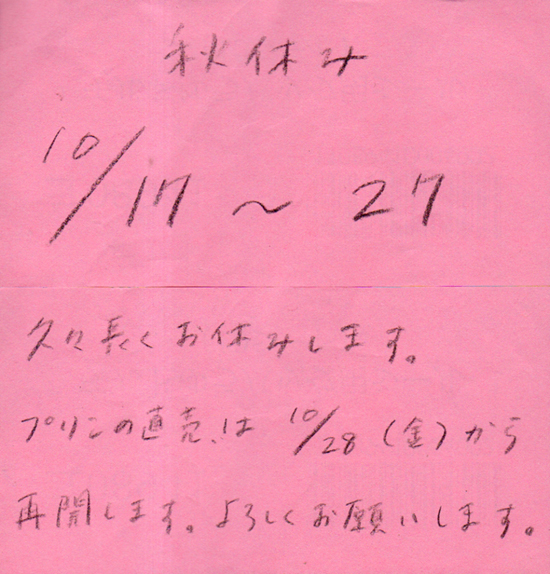 秋休み
10/17 ~ 27
久々長くお休みします。
プリンの直売は 10/28 (金)から
再開します。よろしくお願いします。